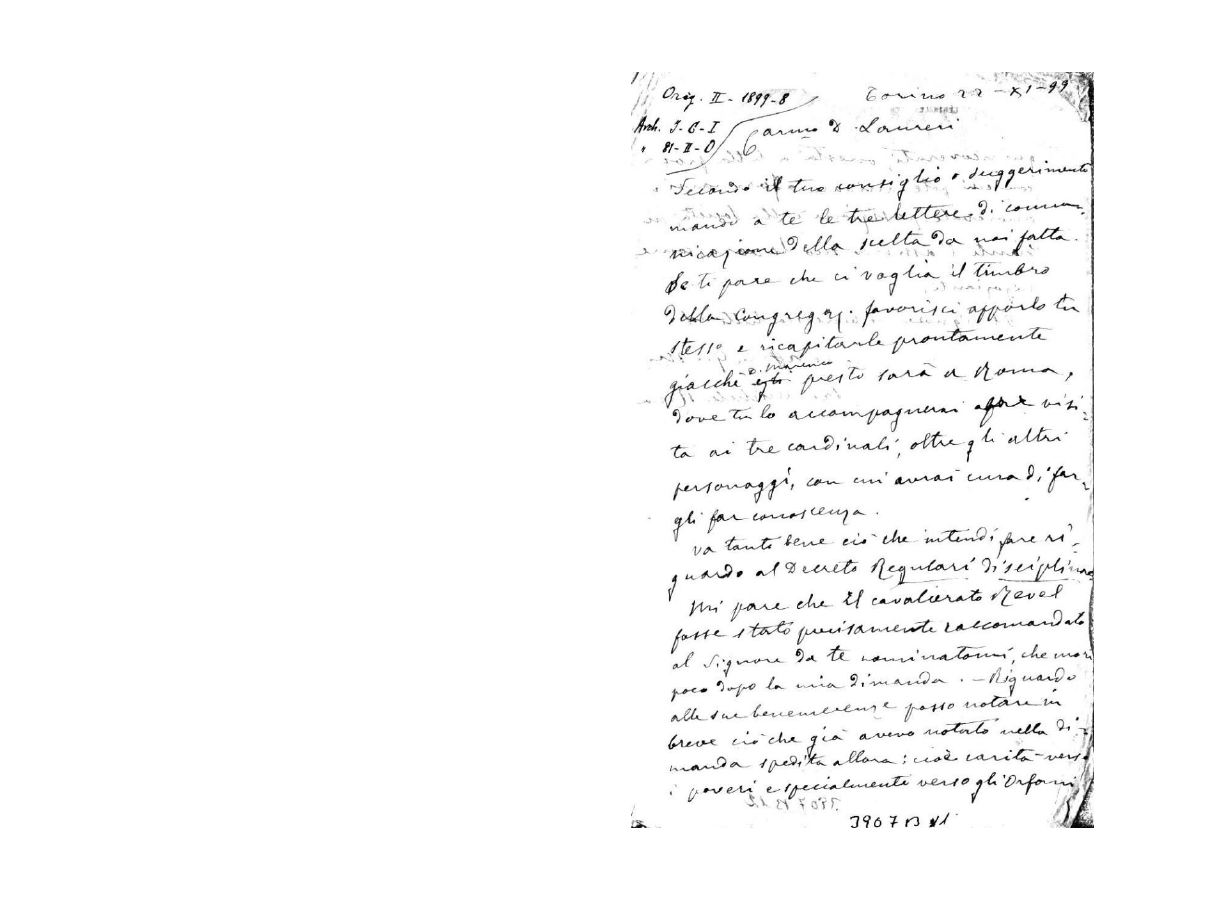 Orig. II - 1899-8
Torino 22 - XI - 99
Arch. I-C-I
" 81-II-O
Carmo D. Laureri
Secondo il tuo consiglio o suggerimento
mando a te le tre lettere di comu-
nicazione della scelta da noi fatta.
Se ti pare che ci voglia il timbro
della Congregaz. favorisci apporlo tu
stesso e ricapitarle prontamente
giacchè D. Marenco presto sarà a Roma,
dove tu lo accompagnerai a far visi-
ta ai tre cardinali, oltre gli altri
personaggi, con cui avrai cura di far-
gli far conoscenza.
Va tanto bene ciò che intendi fare ri-
guardo al Decreto Regulari disciplinae
Mi pare che il cavalierato Revel
fosse stato precisamente raccomandato
al Signore da te nominatomi, che morì
poco dopo la mia dimanda. - Riguardo
alle sue benemerenze posso notare in
breve ciò che già avevo notato nella di-
manda spedita allora: cioè carità verso
i poveri e specialmente verso gli Orfani
3907 B 12
3907 B 11